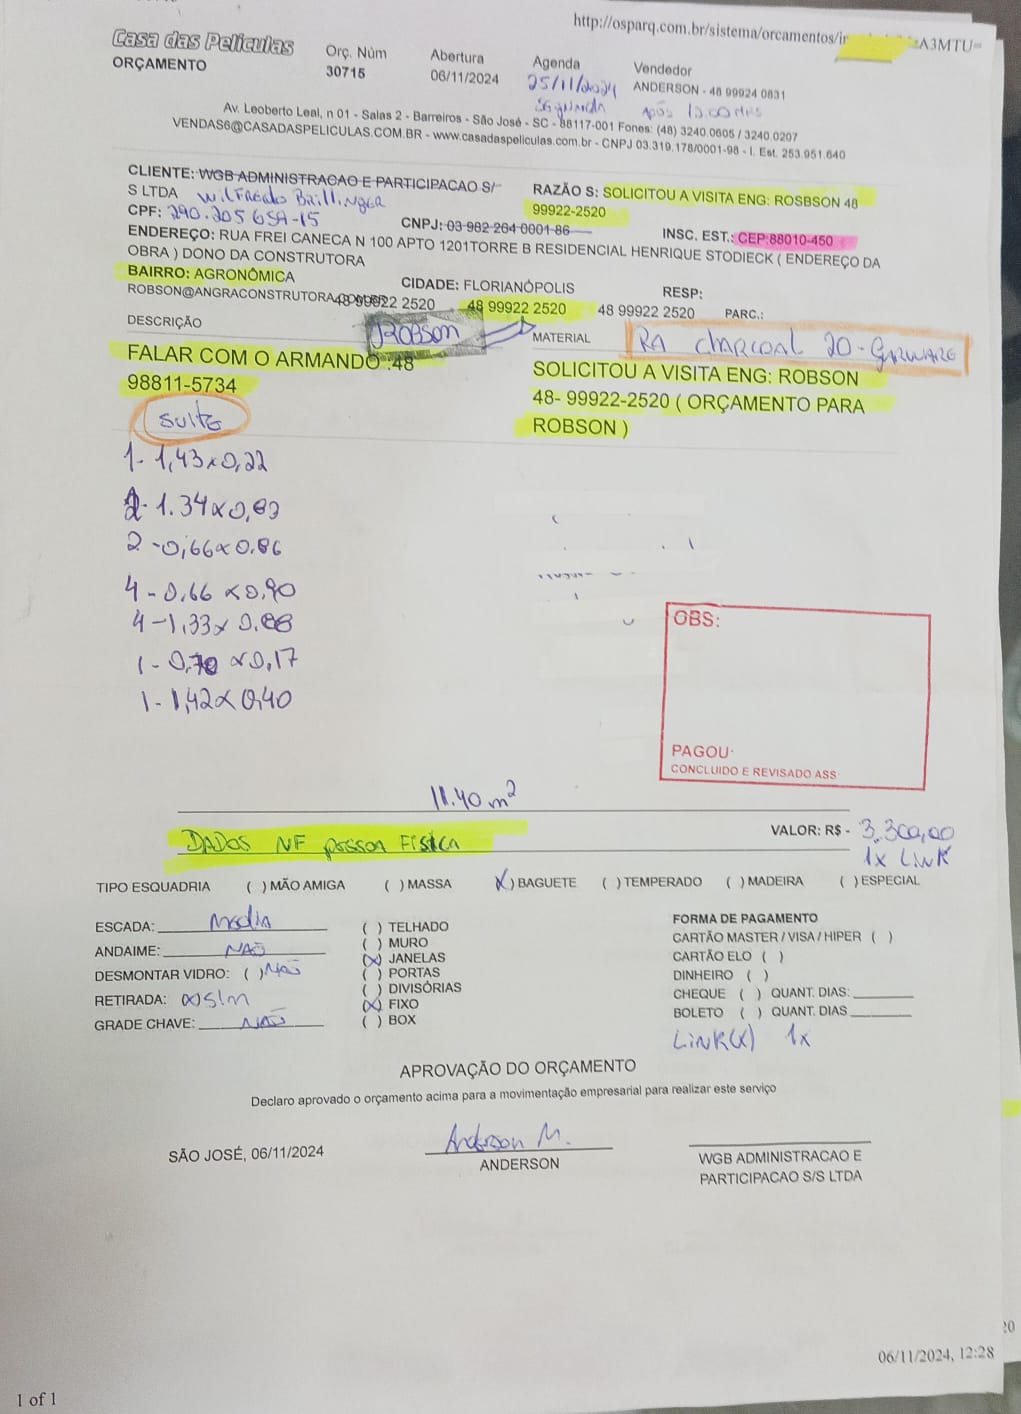 http://osparq.com.br/sistema/orcamentos/ A3MTU=
Casa das Películas
ORÇAMENTO
Orç. Núm
30715
Abertura
06/11/2024
Agenda
25/11/2024
segunda
Vendedor
ANDERSON - 48 99924 0831
Após
Av. Leoberto Leal, n 01 - Salas 2 - Barreiros - São José - SC - 88117-001 Fones: (48) 3240.0605 / 3240.0207
VENDAS6@CASADASPELICULAS.COM.BR - www.casadaspeliculas.com.br - CNPJ 03.319.178/0001-98 - I. Est. 253.951.640
CLIENTE: WGB ADMINISTRACAO E PARTICIPACAO S/
S LTDA Wilfredo Brillinger
CPF: 290.205659-15
RAZÃO S: SOLICITOU A VISITA ENG: ROSBSON 48
99922-2520
CNPJ: 03 982 264 0001-86
INSC. EST.: CEP:88010-450
ENDEREÇO: RUA FREI CANECA N 100 APTO 1201TORRE B RESIDENCIAL HENRIQUE STODIECK ( ENDEREÇO DA
OBRA ) DONO DA CONSTRUTORA
BAIRRO: AGRONÔMICA
CIDADE: FLORIANÓPOLIS
RESP:
ROBSON@ANGRACONSTRUTORA.COM.BR 48 99922 2520 48 99922 2520 48 99922 2520 PARC.:
DESCRIÇÃO
Robson
MATERIAL
RA charcoal 20 - Garware
FALAR COM O ARMANDO :48
98811-5734
SOLICITOU A VISITA ENG: ROBSON
48- 99922-2520 ( ORÇAMENTO PARA
ROBSON )
suite
1- 1,43x0,22
2- 1.34x0,83
2 -0,66x0.86
4 - 0.66 x0,90
4 -1,33x 0.88
1 - 0,70 x0,17
1 - 1,42x 0,40
OBS:
PAGOU:
CONCLUIDO E REVISADO ASS
11.40 m²
DADOS NF pessoa Física
VALOR: R$ - 3.300,00
1x LINK
TIPO ESQUADRIA ( ) MÃO AMIGA ( ) MASSA (X) BAGUETE ( ) TEMPERADO ( ) MADEIRA ( ) ESPECIAL
ESCADA: Media
ANDAIME: NÃO
DESMONTAR VIDRO: ( ) NÃO
RETIRADA: (x) sim
GRADE CHAVE: NÃO
( ) TELHADO
( ) MURO
(x) JANELAS
( ) PORTAS
( ) DIVISÓRIAS
(x) FIXO
( ) BOX
FORMA DE PAGAMENTO
CARTÃO MASTER / VISA / HIPER ( )
CARTÃO ELO ( )
DINHEIRO ( )
CHEQUE ( ) QUANT. DIAS:
BOLETO ( ) QUANT. DIAS
LINK(x) 1x
APROVAÇÃO DO ORÇAMENTO
Declaro aprovado o orçamento acima para a movimentação empresarial para realizar este serviço
SÃO JOSÉ, 06/11/2024
Anderson M.
ANDERSON
WGB ADMINISTRACAO E
PARTICIPACAO S/S LTDA
20
06/11/2024, 12:28
1 of 1